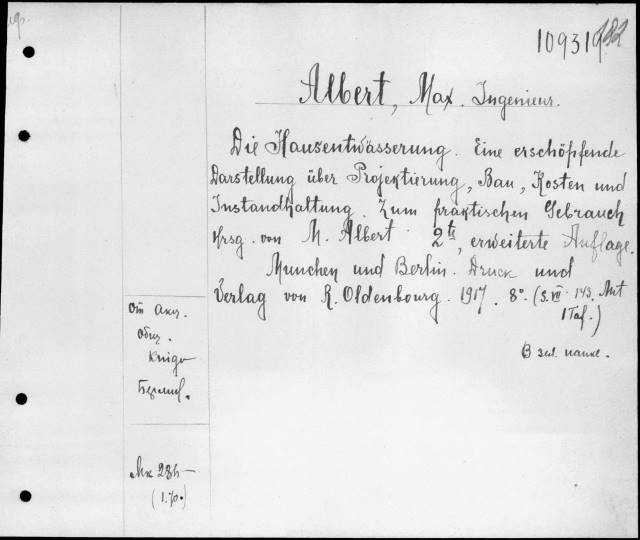 109319
Albert, Max. Ingenieur.
Die Hausentwässerung. Eine erschöpfende
Darstellung über Projektierung, Bau, Kosten und
Instandhaltung. Zum praktischen Gebrauch
hrsg. von M. Albert 2te, erweiterte Auflage.
Munchen und Berlin. Druck und
Verlag von R. Oldenbourg. 1917. 8°. (S. VII. 143. Mit
1 Taf.)
От Акц.
Общ.
Книго
В зел. папке.
Мк 28h-
(1.70.)